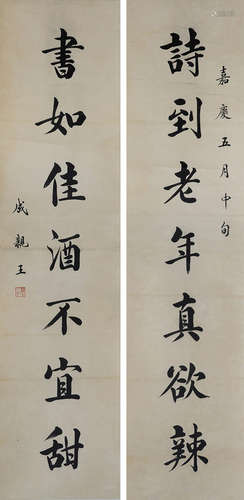 嘉慶五月中旬
詩到老年真欲辣
書如佳酒不宜甜
成親王